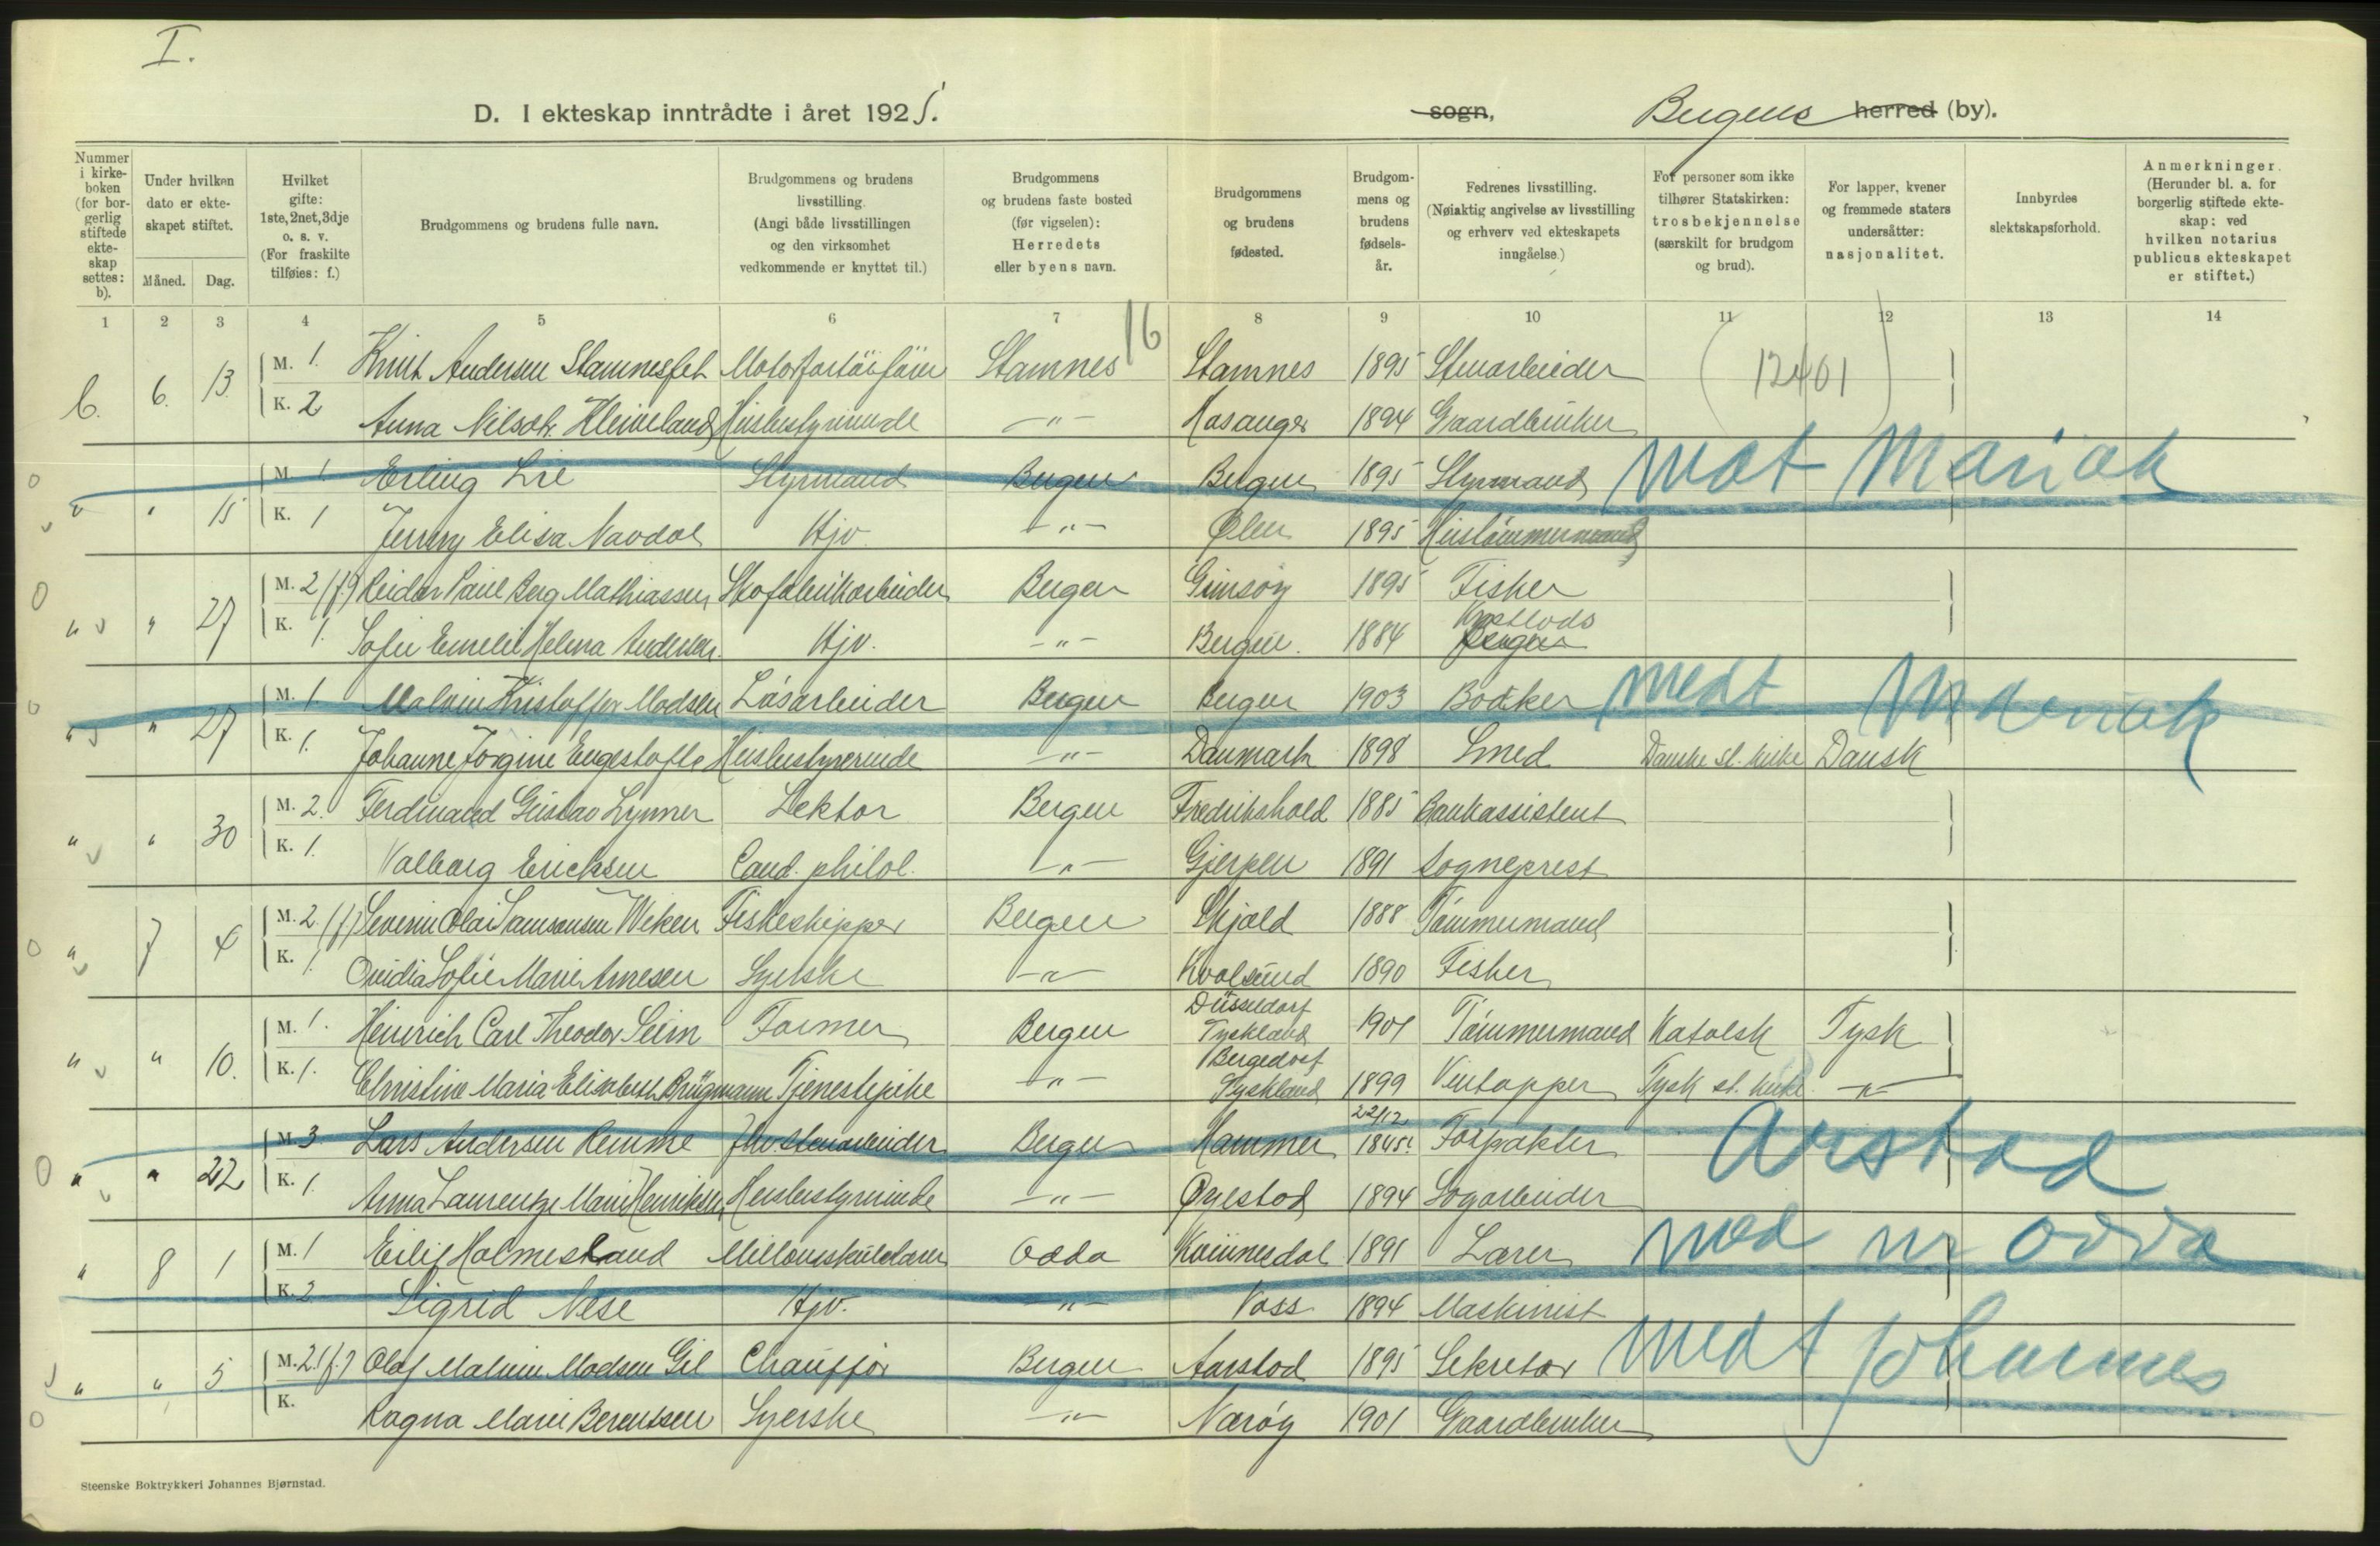 I.
D. I ekteskap inntrådte i året 1925.
sogn, Bergens herred (by).
Nummer i kirkeboken (for borgerlig stiftede ekteskap settes: b).
Under hvilken dato er ekteskapet stiftet.
Måned.
Dag.
Hvilket gifte: 1ste, 2net, 3dje o. s. v. (For fraskilte tilføies: f.)
Brudgommens og brudens fulle navn.
Brudgommens og brudens livsstilling. (Angi både livsstillingen og den virksomhet vedkommende er knyttet til.)
Brudgommens og brudens faste bosted (før vigselen): Herredets eller byens navn.
Brudgommens og brudens fødested.
Brudgommens og brudens fødselsår.
Fedrenes livsstilling. (Nøiaktig angivelse av livsstilling og erhverv ved ekteskapets inngåelse.)
For personer som ikke tilhører Statskirken: trosbekjennelse (særskilt for brudgom og brud).
For lapper, kvener og fremmede staters undersåtter: nasjonalitet.
Innbyrdes slektskapsforhold.
Anmerkninger. (Herunder bl. a. for borgerlig stiftede ekteskap: ved hvilken notarius publicus ekteskapet er stiftet.)
1 2 3 4 5 6 7 8 9 10 11 12 13 14
16
b. 6. 13. M. 1. Knut Andersen Stamnesfet Motorfartöiförer Stamnes Stamnes 1895 Stenarbeider (12401)
K. 2 Anna Nilsdtr. Kleiveland Husbestyrerinde —"— Hosanger 1894 Gaardbruker
" " 15 M. 1. Erling Lie Styrmand Bergen Bergen 1895 Styrmand
K. 1 Jenny Elisa Navdal Hjv. —"— Ølen 1895 Hustömmermand
" " 27 M. 2 (f.) Reidar Paul Berg Mathiassen Skofabrikarbeider Bergen Gimsöy 1895 Fisker
K. 1. Sofie Emelie Helena Andersen Hjv. —"— Bergen. 1884 Kystlods
" " 27 M. 1. Malvin Kristoffer Madsen Lösarbeider Bergen Bergen 1903 Bödker
K. 1. Johanne Jörgine Engestofte Husbestyrerinde —"— Danmark 1898 Smed Danske st. kirke Dansk
" " 30 M. 2. Ferdinand Gustav Lynner Lektor Bergen Fredrikshald 1885 Bankassistent
K. 1. Valborg Erichsen Cand. philol. —"— Gjerpen 1891 Sogneprest
" 7 4 M. 2. (f.) Severin Olai Samsonsen Weken Fiskeskipper Bergen Skjold 1888 Tömmermand
K. 1. Ovidia Sofie Marie Arnesen Syerske —"— Kvalsund 1890 Fisker
" " 10. M. 1. Heinrich Carl Theodor Seim Former Bergen Düsseldorf Tyskland 1901 Tömmermand Katolsk Tysk
K. 1. Christine Maria Elisabeth Brügmann Tjenestepike —"— Bergedorf Tyskland 1899 Vintapper Tysk st. kirke —"—
" " 22 M. 3 Lars Andersen Remme Fhv. Stenarbeider Bergen Hammer 22/12 1845! Forpakter Årstad
K. 1. Anna Laurentze Marie Henriksen Husbestyrerinde —"— Øyestad 1894 Sagarbeider
" 8 1 M. 1 Eilif Holmesland Millomskulelærer Odda Kvinnesdal 1891 Lærer
K. 2 Sigrid Nese Hjv. —"— Voss 1894 Maskinist
" " 5 M. 2. (f.) Olaf Malvin Madsen Gil Chaufför Bergen Aarstad 1895 Sekretær
K. Ragna Marie Berentsen Syerske —"— Næröy 1901 Gaardbruker
Odda
Johannes
Steenske Boktrykkeri Johannes Bjørnstad.